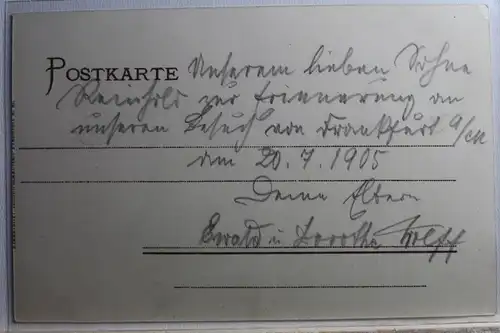 POSTKARTE Unserem lieben Sohne
Reinhold zur Erinnerung an
unseren Besuch von Frankfurt a/M
am 20.7.1905
Deine Eltern
Ewald u Dorothe